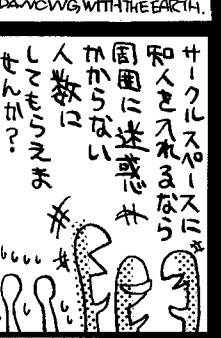 DANCING WITH THE EARTH.
サークルスペースに
知人を入れるなら
周囲に迷惑
かからない
人数に
してもらえま
せんか?